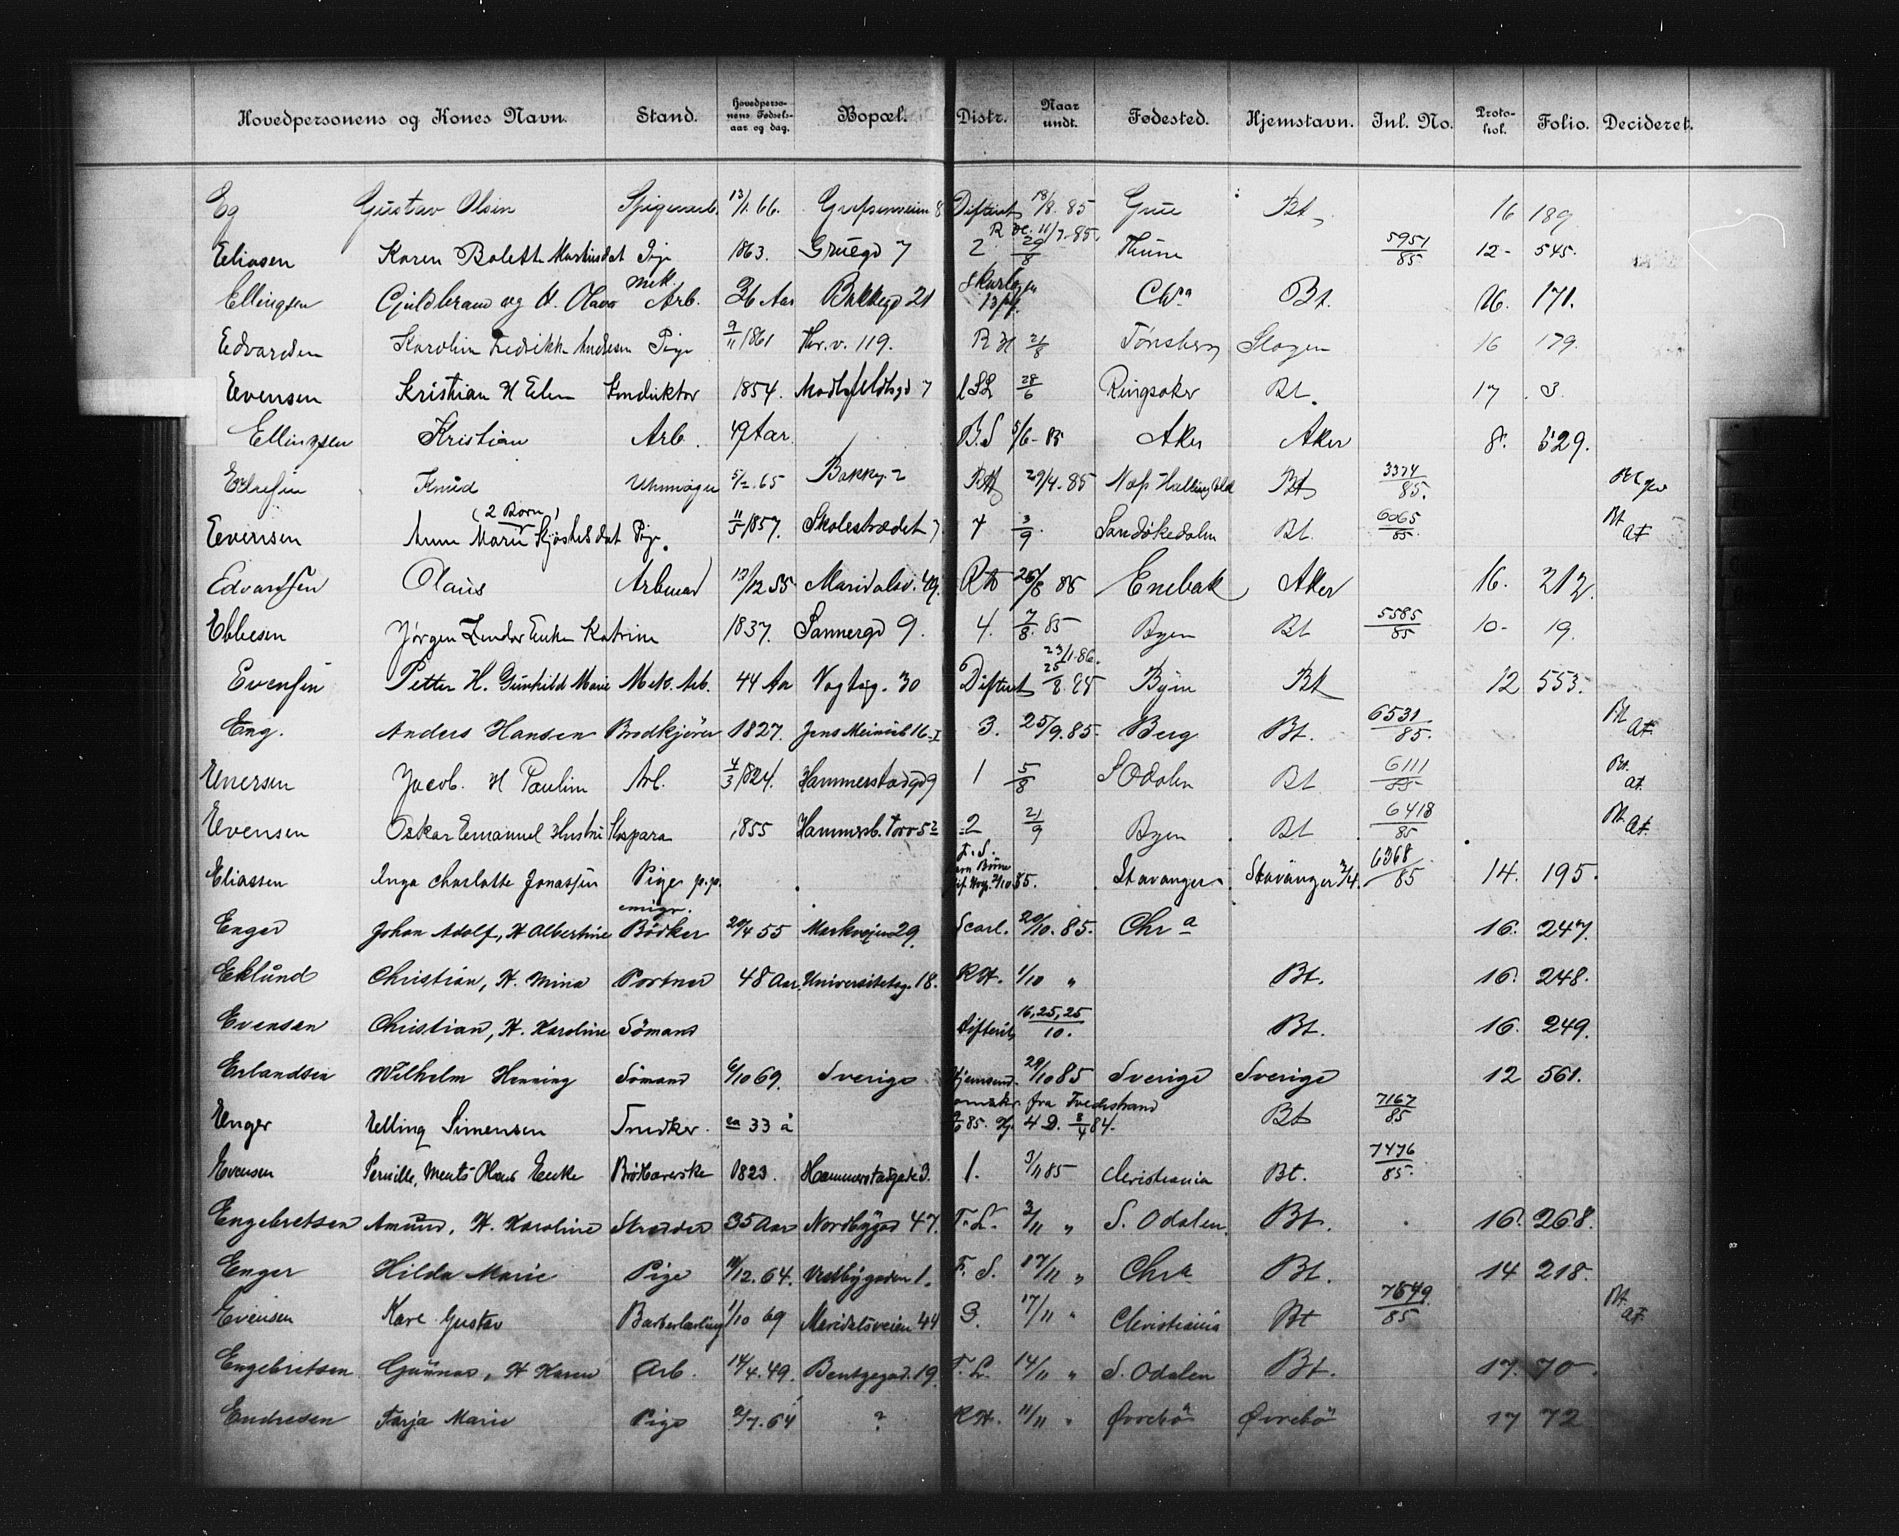 Hovedpersonens og Kones Navn. Stand. Hovedpersonens Fødselsaar og dag. Bopæl. Distr. Naar undt. Fødested. Hjemstavn. Jnl. No. Protokol. Folio. Decideret.
Eg Gustav Olsen Spigerarb. 13/1 66. Grefsenveien 8 Difterit 18/8. 85 Grue Bt. 16 189
R 11/7 85.
Eliasen Karen Bolette Pige 1863. Gruegd 7 2 29/8 5951/85 12- 545.
Ellingsen Guldbrand og H. Olava mek. Arb. 36 Aar Bakkegd 21 Chr.a Bt. 16. 171.
Edvardsen Karolin Fredrikke Andresen Pige 9/11 1861 Thr.v. 119. R H 21/8 Tønsberg Slagen 16 179.
Evensen Kristian H Elen Konduktør 1854. 7 28/6 Ringsaker Bt. 17 3
Ellingsen Kristian Arb. 49 Aar. B.S 5/6-85 Aker Aker 8. 529.
Knud Uhrmager 5/2. 65 Bakkeg. 2 RH 29/4. 85 Bt 3374/85.
(2 Børn)
Evensen Anne Marie Pige. 11/5 1857. Skolestrædet 7 3/9. Bt. 6065/85 Bt at
Edvardsen Olaus Arbmand 13/12 55 Maridalsv. 49. RH 26/8 85 Enebak Aker 16. 212.
Ebbesen Jørgen Enke Katrine 1837. Sannergd 9. 4. 7/8. 85 Byen Bt 5585/85 10- 19.
23/1.86.
Evensen Petter H. Gunhild Marie Mek. Arb. 44 Aar Vogtsg. 30 Difterit 25/8. 85 Byen Bt 12 553.
Eng. Anders Hansen Brødkjører 1827. 16-I 3. 25/9.85. Berg Bt. 6531/85. Bt at
Enersen Jacob. H Paulin Arb. 4/3 1824. Hammerstadgd 9 1 5/8 S Odalen Bt 6111/85 Bt. at
Evensen Oskar Emanuel Hustru 1855 Hammersb. torv 2 21/9 Byen Bt. 6418/85 Bt. at.
Eliassen Inga Charlotte Jonassen Pige p.p. F. S. 85. Stavanger Stavanger 2/4. 6368/85 14. 195.
emigr.
Enger Johan Adolf, H Albertine Bødker 29/4 55 Markvejen 29. Scarl. 20/10. 85. Chra 16. 247.
Eklund Christian, H. Mina Portner 48 Aar. Universitetsg. 18. R.H. 1/10 " Bt. 16. 248.
Evensen Christian, H. Karoline Sømand Difterit, 16, 25, 25/10. Bt. 16. 249.
Erlandsen Wilhelm Henning Sømand 6/10 69. Sverige Hjemsend. 29/10 85 Sverige Sverige 12 561.
fra Tvedestrand
Enger Elling Simensen Snedker. ca 33 å 85. 4 D. 3/4 84. Bt 7167/85
Evensen Pernille, Ments Olaus Enke 1823. Hammerstadgade 3. 1. 3/11 85 Christiania Bt. 7476/85.
Engebretsen Amund, H. Karoline Skræder 35 Aar Nordbygad 47. F. L. 3/11 " S. Odalen. Bt. 16. 268.
Enger Hilda Marie Pige 10/12. 64. Vestbygaden 1. F. S. 17/11 " Chra Bt. 14 218.
Evensen Karl Gustav Barberlærling 1/10 69 Maridalsveien 44 3. 17/11 " Christiania Bt 7649/85 Bt. at.
Engebretsen Gunnar, H Karen Arb. 14/4. 49. Bentzegad. 19. F. L. 14/11 " S. Odalen Bt. 17. 70.
Endresen Tarja Marie Pige 2/7. 64 ? R.H. 11/11 " Øvrebø Øvrebø 17 72